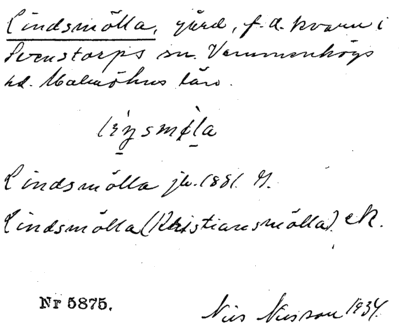 Lindsmölla, gård, f.d. kvarn i
Svenstorps sn. Vemmenhögs
hd. Malmöhus län.
Lindsmölla jb. 1881.
Lindsmölla (Kristiansmölla). ek.
Nr 5875.
Nils Nilsson 1934.